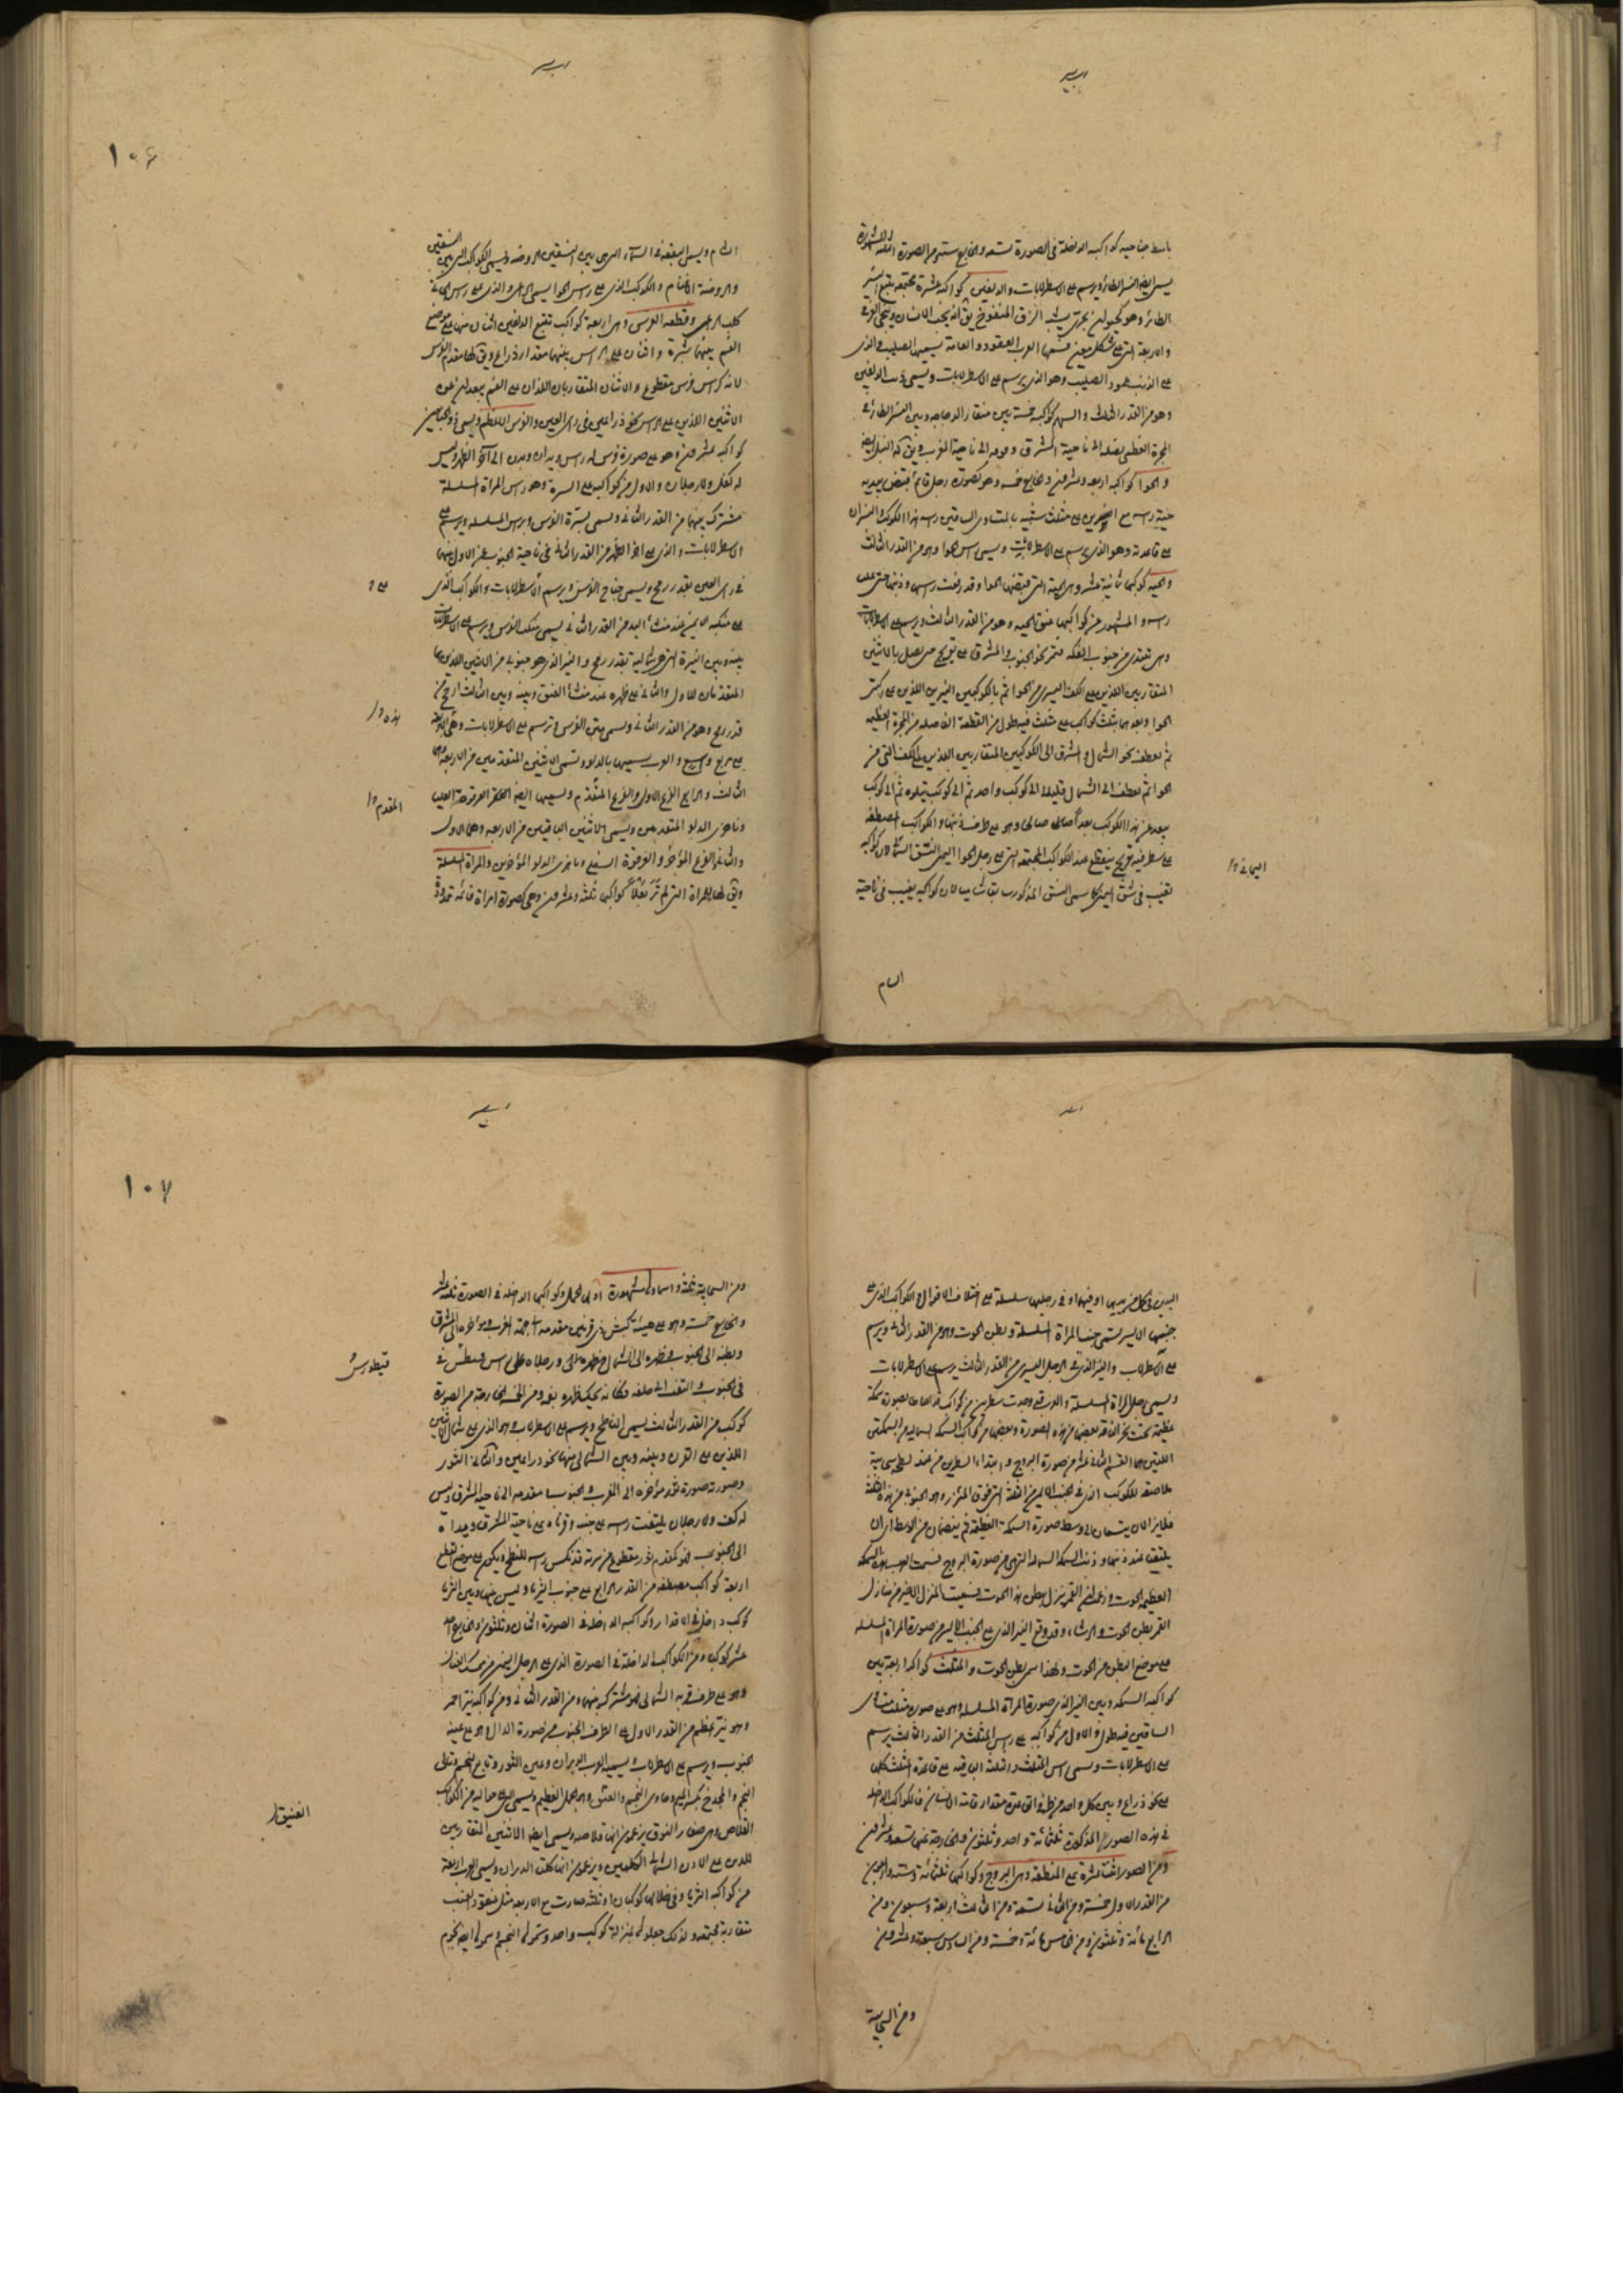 باسط جناحيه كواكبه الداخلة في الصورة تسعة والخارج ستة ومن الصورة الثلثة المشهورة
يسمى ايضا النسر الطائر ويرسم على الاسطرلابات والدلفين كواكبه عشرة مجتمعة تتبع النسر
الطائر وهو كحيوان بحري يشبه الزق المنفوخ يق انه يحب الانسان وينجي الغرقى
والاربعة التي على شكل معين تسميها العرب العقود والعامة يسميها الصليب والذي
على الذنب عمود الصليب وهو الذي يرسم على الاسطرلابات ويسمى ذنب الدلفين
وهو من القدر الثالث والسهم كواكبه خمسة بين منقار الدجاجة وبين النسر الطائر في
المجرة العظمى نصله الى ناحية المشرق وفوقه الى ناحية المغرب ويق له النبل ايضا
والحوا كواكبه اربعة وعشرون والخارج خمسة وهو كصورة رجل قائم قبض بيديه
حية رأسه مع على مثلث شبيه بالمتساوي الساقين رأسه هذا الكوكب والنسران
على قاعدته وهو الذي يرسم على الاسطرلابات ويسمى رأس الحوا وهو من القدر الثالث
والحية كوكبها ثمانية عشر وهي الحية التي قبضها الحوا وقد رفعت رأسها وذنبها حتى علت
رأسه والمشهور من كواكبها عنق الحية وهو من القدر الثالث ويرسم على الاسطرلابات
وهي تبتدي من جنوب الفكة فتمر نحو الجنوب والمشرق على تعويج حتى تصل بالاثنين
المتقاربين اللذين على الكف اليسرى من الحوا ثم بالكوكبين النيرين اللذين على ركبتي
الحوا وبعدهما بثلث كواكب على مثلث فيه طول من القطعة الفاصلة من المجرة العظيمة
ثم تعطف نحو الشمال والمشرق الى الكوكبين المتقاربين اللذين على الكف التي من
الحوا ثم تعطف الى الشمال قليلا الى كوكب واحد ثم الى كوكب يتلوه ثم الى كوكب
بعد من هذا الكوكب بعدا صالحا وهو على طرف ذنبها والكواكب المصطفة
على سطر فيه تعويج ينقطع عند الكواكب المجتمعة التي على رجل الحوا اليمنى النسق الشامي لان كواكبه
تغيب في شق اليمن كما سمى النسق المذكور شاميا لان كواكبه يغيب في ناحية
اليماني
الشام
١٠٦
الشام ويسمى البقعة من السماء التي بين النسقين الروضة ويسمى الكواكب التي بين النسقين
والروضة الاغنام والكوكب الذي على رأس الحوا يسمى الراعي والذي على رأس الجاثي
كلب الراعي وقطعة الفرس وهي اربعة كواكب تتبع الدلفين اثنان منها على موضع
الفم بينهما شبرة واثنان على الرأس بينهما مقدار ذراع ويق لها مقدم الفرس
لانه كرأس فرس مقطوع والاثنان المتقاربان اللذان على الفم بعدهما عن
الاثنين اللذين على الرأس نحو ذراعين في رأى العين والفرس الاعظم ويسمى ذو الجناحين
كواكبه عشرون وهو على صورة فرس له رأس ويدان وبدن الى آخر الظهر وليس
له كفل ولا رجلان والاول من كواكبه على السرة وهو رأس المرأة المسلسلة
مشترك بينهما من القدر الثاني ويسمى سرة الفرس ورأس المسلسلة ويرسم على
الاسطرلابات والذي على آخر الظهر من القدر الثاني في ناحية الجنوب عن الاول بينهما
في رأى العين بقدر رمح ويسمى جناح الفرس ويرسم الاسطرلابات والكواكب الذي
على منكبه الايمن عند منشأ اليد من القدر الثاني يسمى منكب الفرس ويرسم على الاسطرلابات
بينه وبين النيرة التي هي شمالية بقدر رمح والنير الذي هو جنوبي من الاثنين اللذين هما
المتقدمان للاول والثاني على ظهره عند منشأ العنق وبينه وبين الثالث ارجح من
قدر رمح وهو من القدر الثاني ويسمى متن الفرس ويرسم على الاسطرلابات وهي الاربعة
على مربع واسع والعرب يسميها بالدلو وتسمى الاثنين المتقدمين من الاربعة وهي
الثالث والرابع الفرغ الاول والفرغ المتقدم ويسميها ايضا العرقوة العليا
وناهزى الدلو المتقدمين ويسمى الاثنين الباقيين من الاربعة وهما الاول
والثاني الفرغ المؤخر والعرقوة السفلى وناهزى الدلو المؤخرين والمرأة المسلسلة
ويق لها المرأة التي لم تر بعلا كواكبها ثلثة وعشرون وهي كصورة امرأة قائمة ممدودة
على
هذه
المقدم
اليدين في كل من يديها او فيهما او في رجليها سلسلة على اختلاف الاقوال والكواكب الذي على
جنبها الايسر يسمى جنب المرأة المسلسلة وبطن الحوت وهو من القدر الثاني ويرسم
على الاسطرلاب والنير الذي في الرجل اليسرى من القدر الثالث يرسم على الاسطرلابات
ويسمى رجل المرأة المسلسلة والعرب قد وجدت سطرين من كواكب قد احاطا بصورة سمكة
عظيمة تحت نحر الناقة بعضها من هذه الصورة وبعضها من كواكب السمكة الشمالية من السمكتين
اللتين هما القسم الثاني عشر من صورة البروج وابتداء السطرين من عند لطخة سحابية
ملاصقة للكوكب الذي في الجنب الايمن من الثلثة التي فوق المئزر وهو الجنوبي من هذه الثلثة
فلا يزالان يتسعان الى وسط صورة السمكة العظيمة ثم ينضمان من الوسط الى ان
يلتقيا عند ذنبها وذنب السمكة الشمالية التي هي من صورة البروج فسمت العرب هذه السمكة
العظيمة الحوت وزعموا ان القمر ينزل ببطن هذا الحوت فسميت المنزل الاخير من منازل
القمر بطن الحوت والرشاء وقد وقع النير الذي على الجنب الايسر من صورة المرأة المسلسلة
على موضع البطن من الحوت ولهذا سمى بطن الحوت والمثلث كواكبه اربعة بين
كواكب السمكة وبين النير الذي صورة المرأة المسلسلة وهو على صورة مثلث متساوي
الساقين فيه طول والاول من كواكبه على رأس المثلث من القدر الثالث يرسم
على الاسطرلابات ويسمى رأس المثلث والثلثة الباقية على قاعدة المثلث كلها
على نحو ذراع وبين كل واحد من طرفي القاعدة مقدار قامة الانسان فالكواكب الداخلة
في هذه الصور المذكورة ثلثمائة واحد وثلثون والخارجة عنها تسعة وعشرون
ومن الصور اثنتا عشرة على المنطقة وهي البروج وكواكبها ثلثمائة وستة واربعون
من القدر الاول خمسة ومن الثاني تسعة ومن الثالث اربعة وستون ومن
الرابع مائة وثلثون ومن الخامس مائة وخمسة ومن السادس سبعة وعشرون
ومن السحابية
١٠٧
ومن السحابية ثلثة واسماؤها مشهورة اولها الحمل وكواكبها الداخلة في الصورة ثلثة عشر
والخارج خمسة وهو على هيئة كبش ذي قرنين مقدمه الى جهة المغرب ومؤخره الى المشرق
وبطنه الى الجنوب وظهره الى الشمال ورجلاه على رأس قيطس
في الجنوب والتفت الى خلفه فكانه يحك ظهره بفمه ومن الخمسة الخارجة من الصورة
كوكب من القدر الثالث يسمى الناطح ويرسم على الاسطرلاب وهو الذي على شمال الاثنين
اللذين على القرن وبينه وبين الشمالي منهما نحو ذراعين والثاني الثور
وصورته صورة ثور مؤخره الى المغرب والجنوب مقدمه الى ناحية المشرق وليس
له كفل ولا رجلان يلتفت رأسه على جنبه وقرناه على ناحية المشرق ويداه
الى الجنوب فهو كمقدم ثور مقطوع من سرته قد نكس رأسه للنطح ويكون على موضع القطع
اربعة كواكب مصطفة من القدر الرابع على جنوب الثريا وليس بينها وبين الثريا
كوكب داخل في الاقدار وكواكبه الداخلة في الصورة اثنان وثلثون والخارج احد
عشر كوكبا ومن الكواكب الداخلة في الصورة الذي على الرجل اليمنى من ممسك العنان
وهو على طرف قرنه الشمالي فهو مشترك بينهما ومن القدر الثاني ومن كواكبه نير احمر
وهو نير عظيم من القدر الاول على الطرف الجنوبي من صورة الدال وهو على عينه
الجنوبي ويرسم على الاسطرلاب ويسميه العرب الدبران وعين الثور وتابع النجم وتالي
النجم والمجدح بكسر الميم وحادي النجم والفنيق وهو الجمل العظيم ويسمى التي حواليه من الكواكب
القلاص وهي صغار النوق يزعمون انها قلاصه ويسمى ايضا الاثنين المتقاربين
اللذين على الاذن الشمالية الكلبين ويزعمون انهما كلبا الدبران ويسمى العرب اربعة
من كواكبه الثريا وفي خلالها كوكبان او ثلثة صارت مع الاربعة مثل عنقود العنب
متقاربة مجتمعة ولذلك جعلوها بمنزلة كوكب واحد وسموها النجم وسموها ايضا نجوم
قيطورس
الفنيق